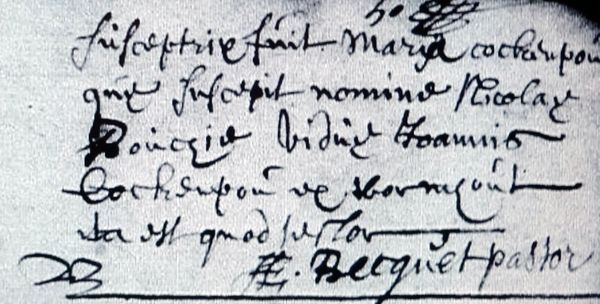 susceptrix fuit Maria Cockenpou
quæ suscepit nomine Nicolaæ
Bouczie viduæ Joannis
Cockenpou ex Wormhout
ita est quod testor
Becquet pastor